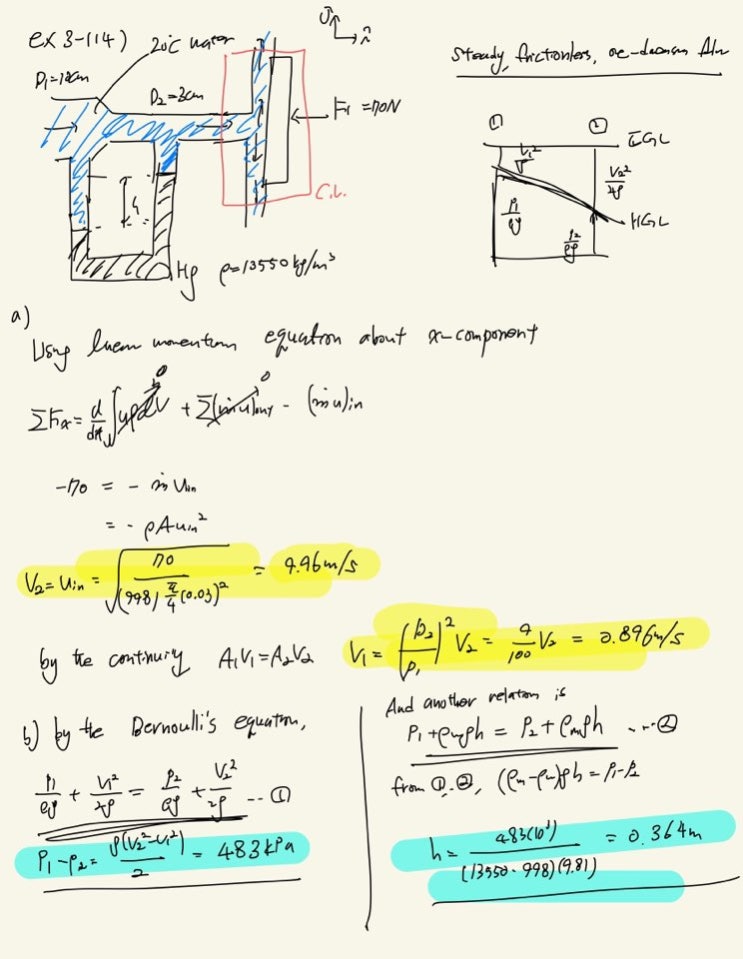 ex 3-114)
20°C water
D₁=10cm
D₂=3cm
F₁=70N
C.V.
Hg ρ=13550kg/m³
h
Steady, frictionless, one-dimension flow
① ②
EGL
V₁²
V₂²/2g
P₁/ρg
HGL
P₂/ρg
a)
Using linear momentum equation about x-component
ΣFx = d/dt ∫uρdV + Σ(ṁu)out - (ṁu)in
0 0
-70 = - ṁ Uin
= - ρAuin²
V₂ = Uin = √(70/((998) π/4 (0.03)²)) = 9.96m/s
by the continuity A₁V₁=A₂V₂
V₁ = (D₂/D₁)² V₂ = 9/100 V₂ = 0.896m/s
b) by the Bernoulli's equation,
P₁/ρg + V₁²/2g = P₂/ρg + V₂²/2g ... ①
P₁-P₂ = ρ(V₂²-V₁²)/2 = 483kPa
And another relation is
P₁+ρwgh = P₂+ρmgh ... ②
from ①, ②, (ρm-ρw)gh = P₁-P₂
h = 483(10³)/((13550-998)(9.81)) = 0.364m